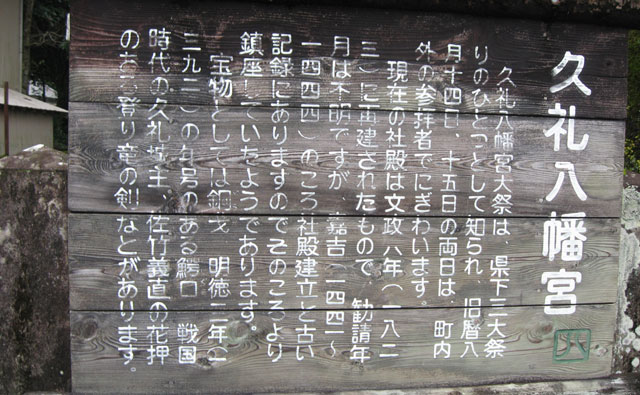 久礼八幡宮
八
久礼八幡宮大祭は、県下三大祭
りのひとつとして知られ、旧暦八
月十四日、十五日の両日は、町内
外の参拝者でにぎわいます。
現在の社殿は文政八年(一八二
三)に再建されたもので、勧請年
月は不明ですが、嘉吉(一四四一~
一四四四)のころ社殿建立と古い
記録にありますのでそのころより
鎮座していたようであります。
宝物としては銅戈 明徳二年(一
三九二)の年号のある鰐口 戦国
時代の久礼城主、佐竹義直の花押
のある登り竜の剣などがあります。